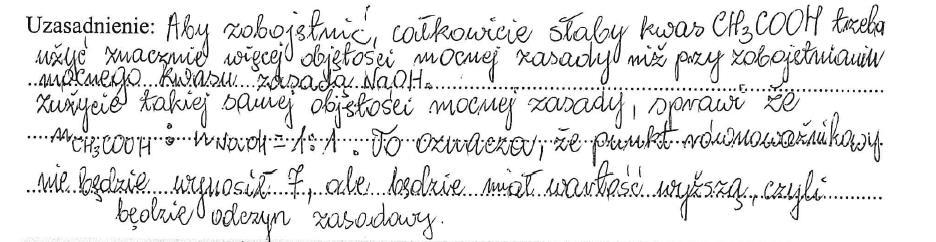 Uzasadnienie: Aby zobojętnić, całkowicie słaby kwas CH₃COOH trzeba
użyć znacznie więcej objętości mocnej zasady niż przy zobojętnianiu
mocnego kwasu zasadą NaOH.
Zużycie takiej samej objętości mocnej zasady, sprawi że
nCH₃COOH : nNaOH = 1:1. To oznacza, że punkt równoważnikowy
nie będzie wynosił 7, ale będzie miał wartość wyższą, czyli
będzie odczyn zasadowy.